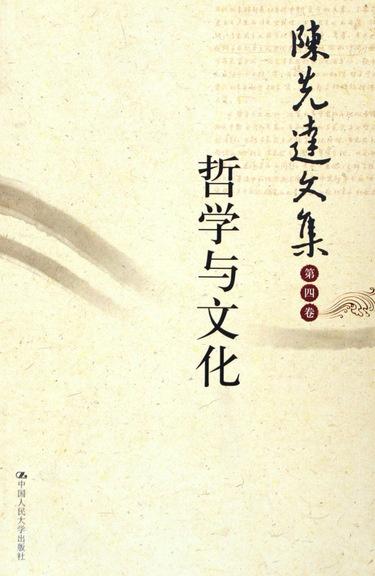 陳先達文集
第四卷
哲学与文化
中国人民大学出版社